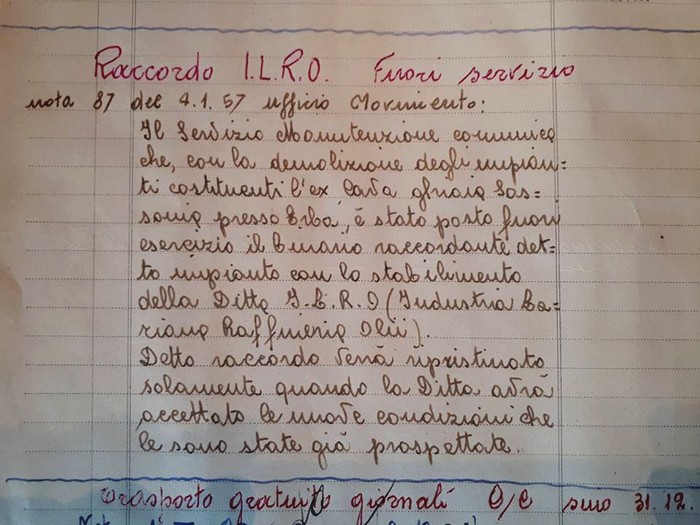 Raccordo I.L.R.O. Fuori servizio
nota 87 del 4.1.57 ufficio Movimento:
Il Servizio Manutenzione comunica
che, con la demolizione degli impian=
ti costituenti l'ex Cava ghiaia Sas=
sonia presso Erba, è stato posto fuori
esercizio il binario raccordante det=
to impianto con lo stabilimento
della Ditta I.L.R.O (Industria La=
riana Raffineria Olii).
Detto raccordo verrà ripristinato
solamente quando la Ditta avrà
accettato le nuove condizioni che
le sono state già prospettate.
Trasporto gratuito giornali O/C 31.12.